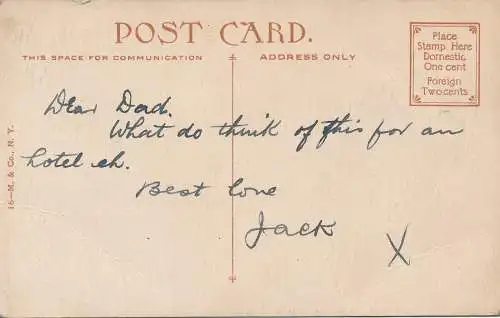 POST CARD.
THIS SPACE FOR COMMUNICATION
ADDRESS ONLY
Place
Stamp Here
Domestic
One cent
Foreign
Two cents
16-M. & Co., N. Y.
Dear Dad.
What do think of this for an
hotel eh.
Best love
Jack
X